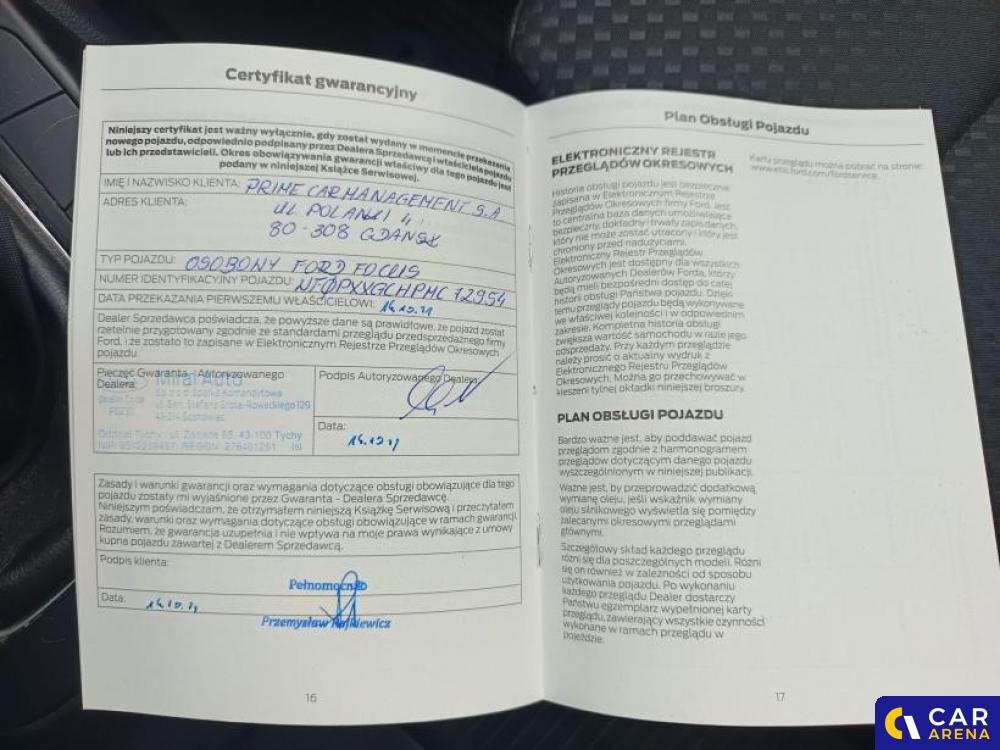 Certyfikat gwarancyjny
Niniejszy certyfikat jest ważny wyłącznie, gdy został wydany w momencie przekazania
nowego pojazdu, odpowiednio podpisany przez Dealera Sprzedawcę i właściciela pojazdu
lub ich przedstawicieli. Okres obowiązywania gwarancji właściwy dla tego pojazdu jest
podany w niniejszej Książce Serwisowej.
IMIĘ I NAZWISKO KLIENTA: PRIME CAR MANAGEMENT S.A
ADRES KLIENTA: UL POLANKI 4,
80-308 GDAŃSK
TYP POJAZDU: OSOBOWY FORD FOCUS
NUMER IDENTYFIKACYJNY POJAZDU: NF0PXXGCHPMC72954
DATA PRZEKAZANIA PIERWSZEMU WŁAŚCICIELOWI:
Dealer Sprzedawca poświadcza, że powyższe dane są prawidłowe, że pojazd został
rzetelnie przygotowany zgodnie ze standardami przeglądu przedsprzedażnego firmy
Ford, i że zostało to zapisane w Elektronicznym Rejestrze Przeglądów Okresowych
pojazdu.
Pieczęć Gwaranta - Autoryzowanego
Dealera:
Miral Auto
Sp. z o.o. Spółka Komandytowa
ul. Gen. Stefana Grota-Roweckiego 129
41-214 Sosnowiec
Dealer Code
Oddział Tychy, ul. Żorska 55, 43-100 Tychy
Podpis Autoryzowanego Dealera:
Data:
Zasady i warunki gwarancji oraz wymagania dotyczące obsługi obowiązujące dla tego
pojazdu zostały mi wyjaśnione przez Gwaranta - Dealera Sprzedawcę.
Niniejszym poświadczam, że otrzymałem niniejszą Książkę Serwisową i przeczytałem
zasady, warunki oraz wymagania dotyczące obsługi obowiązujące w ramach gwarancji.
Rozumiem, że gwarancja uzupełnia i nie wpływa na moje prawa wynikające z umowy
kupna pojazdu zawartej z Dealerem Sprzedawcą.
Podpis klienta:
Pełnomocnik
Data:
Przemysław
16
Plan Obsługi Pojazdu
ELEKTRONICZNY REJESTR
PRZEGLĄDÓW OKRESOWYCH
Historia obsługi pojazdu jest bezpiecznie
zapisana w Elektronicznym Rejestrze
Przeglądów Okresowych firmy Ford. Jest
to centralna baza danych umożliwiająca
bezpieczny, dokładny i trwały zapis danych,
który nie może zostać utracony i który jest
chroniony przed nadużyciami.
Elektroniczny Rejestr Przeglądów
Okresowych jest dostępny dla wszystkich
Autoryzowanych Dealerów Forda, którzy
będą mieli bezpośredni dostęp do całej
historii obsługi Państwa pojazdu. Dzięki
temu przeglądy pojazdu będą wykonywane
we właściwej kolejności i w odpowiednim
zakresie. Kompletna historia obsługi
zwiększa wartość samochodu w razie jego
odsprzedaży. Przy każdym przeglądzie
należy prosić o aktualny wydruk z
Elektronicznego Rejestru Przeglądów
Okresowych. Można go przechowywać w
kieszeni tylnej okładki niniejszej broszury.
PLAN OBSŁUGI POJAZDU
Bardzo ważne jest, aby poddawać pojazd
przeglądom zgodnie z harmonogramem
przeglądów dotyczącym danego pojazdu
wyszczególnionym w niniejszej publikacji.
Ważne jest, by przeprowadzić dodatkową
wymianę oleju, jeśli wskaźnik wymiany
oleju silnikowego wyświetla się pomiędzy
zalecanymi okresowymi przeglądami
głównymi.
Szczegółowy skład każdego przeglądu
różni się dla poszczególnych modeli. Różni
się on również w zależności od sposobu
użytkowania pojazdu. Po wykonaniu
każdego przeglądu Dealer dostarczy
Państwu egzemplarz wypełnionej karty
przeglądu, zawierający wszystkie czynności
wykonane w ramach przeglądu w
pojeździe.
Kartę przeglądu można pobrać na stronie:
www.etis.ford.com/fordservice.
17
CAR
ARENA